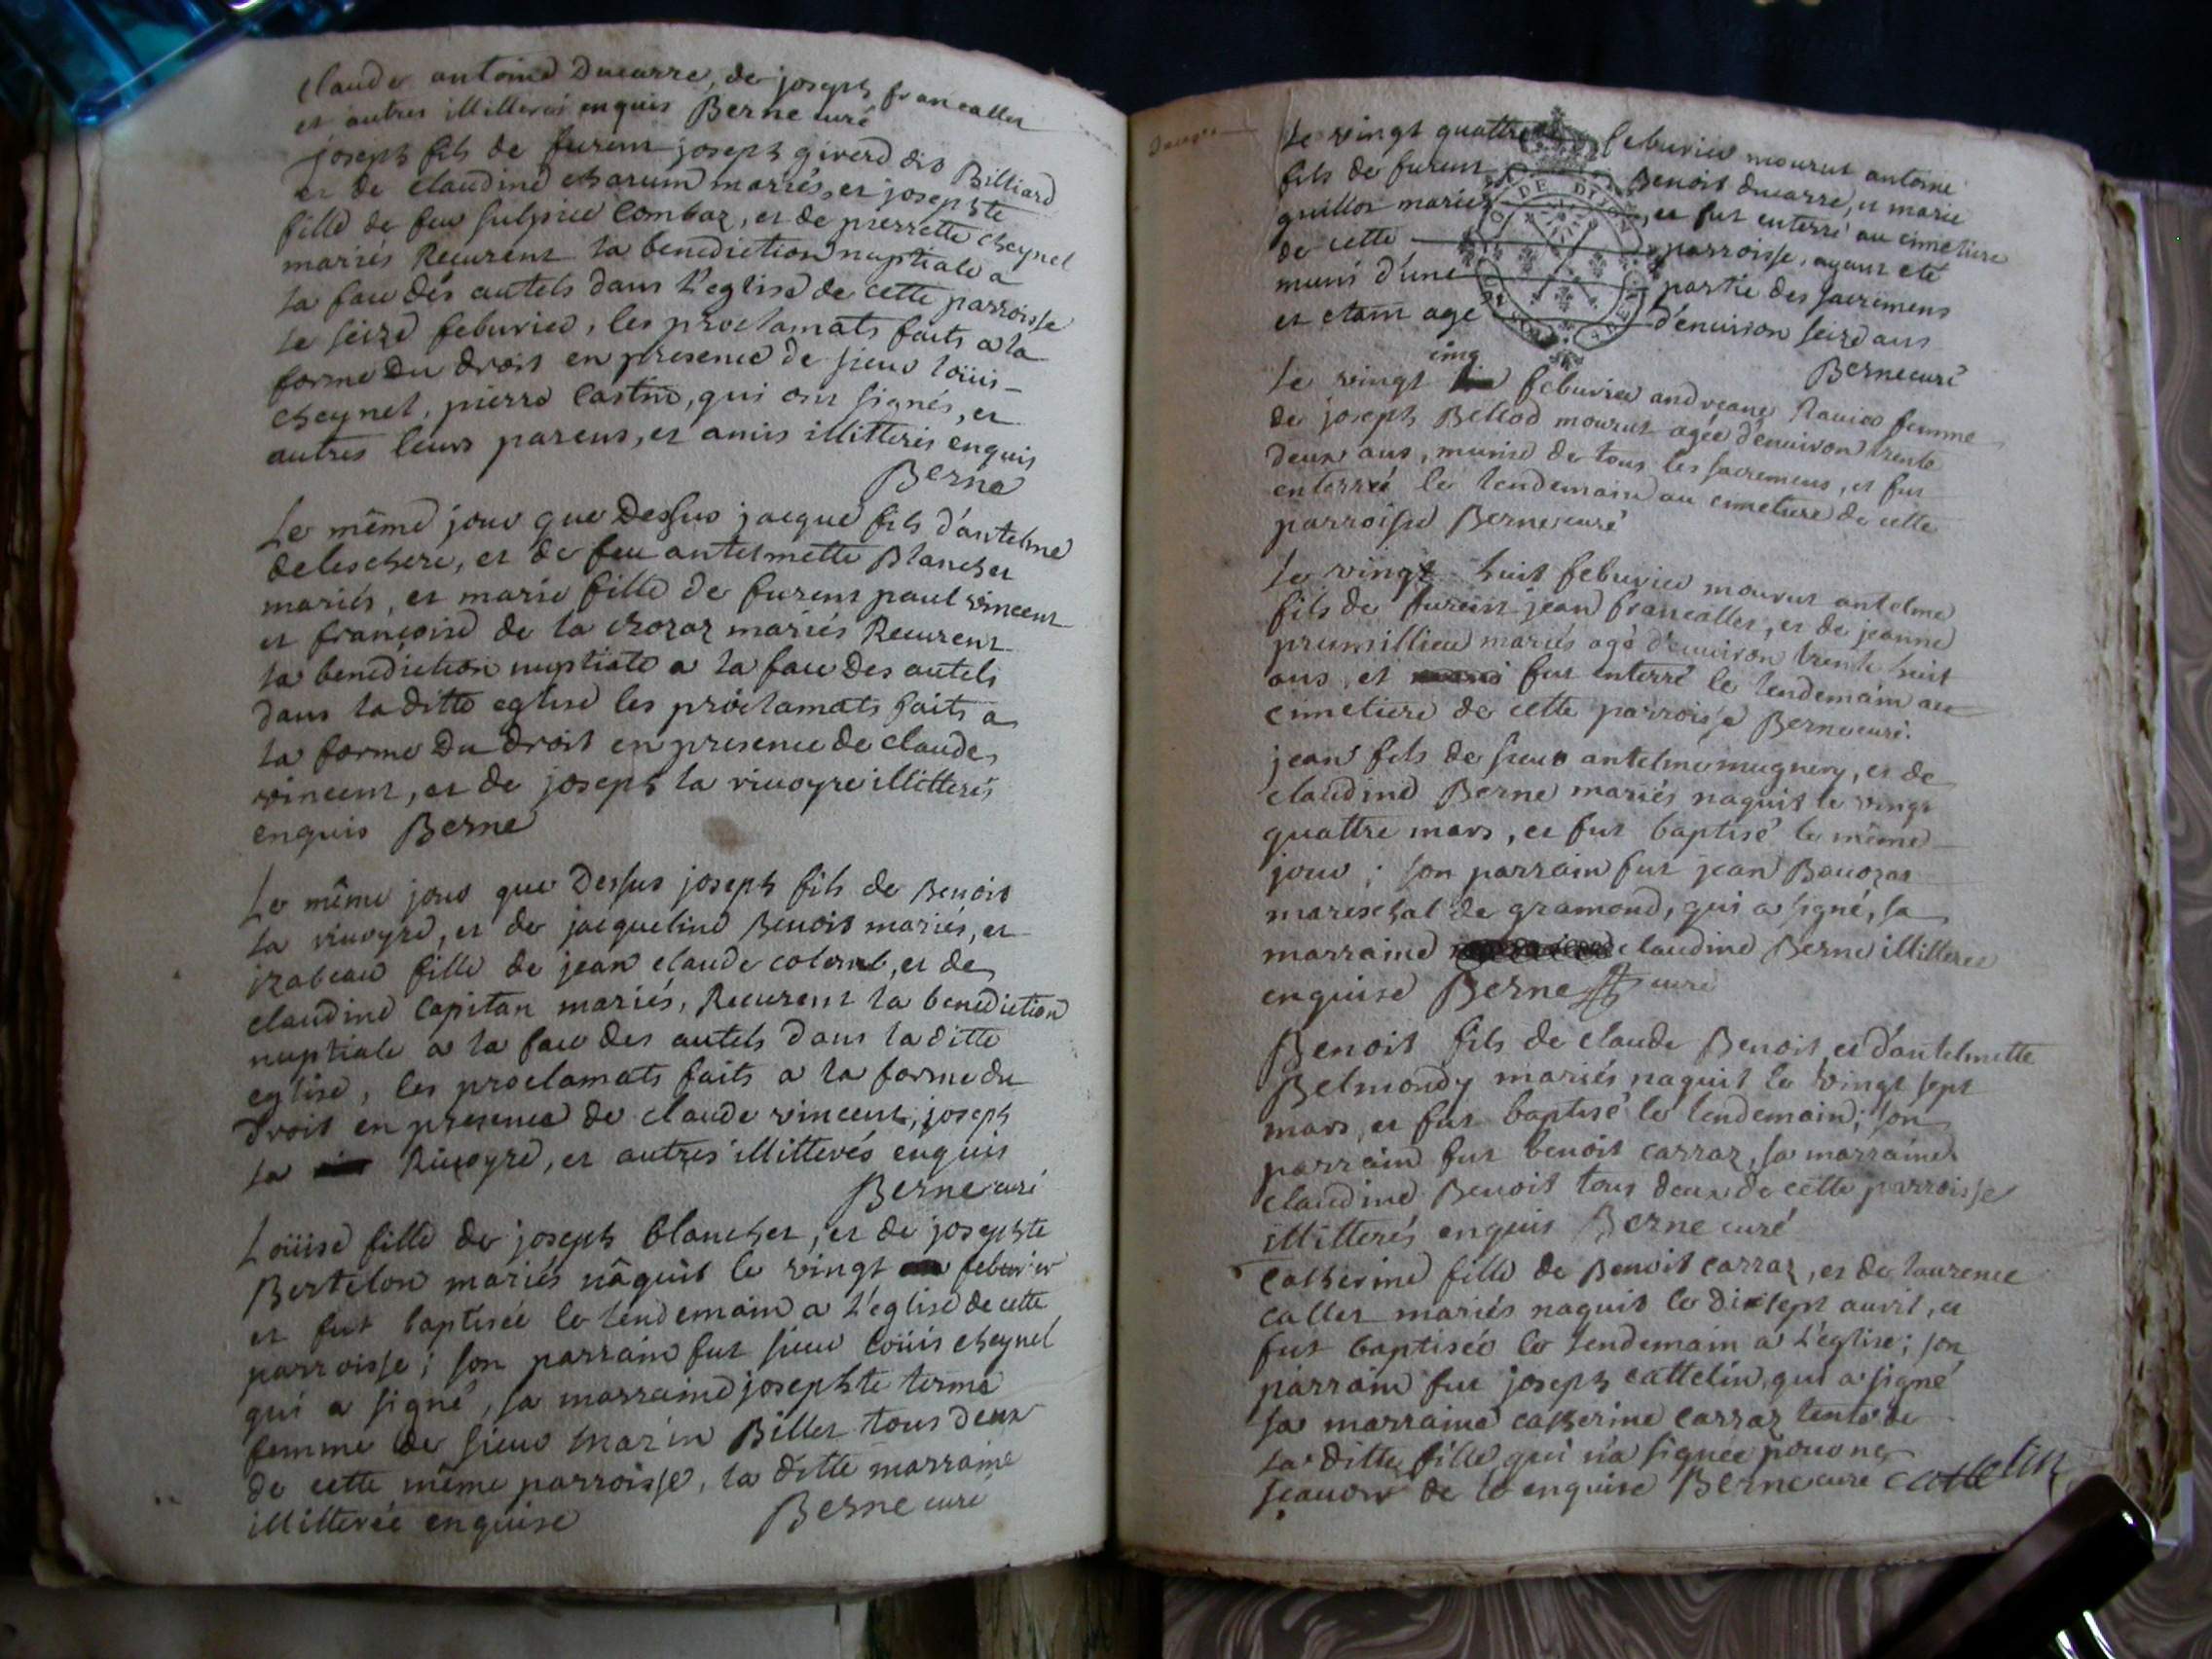 claude antoine Ducarre, de joseph francallet
et autres illitterés enquis Berne curé
joseph fils de furent joseph giverd dit Billiard
et de claudine charum mariés, et josephte
fille de feu sulpice Combaz, et de pierrette cheynel
mariés Recurent la benediction nuptiale a
la face des autels dans l'eglise de cette parroisse
le seize feburier, les proclamats faits a la
forme Du droit en presence de sieur loüis
cheynel, pierre Castin, qui ont signés, et
autres leurs parens, et amis illitterés enquis
Berne
Le même jour que Dessus jacque fils d'antelme
deleschere, et de feu antelmette Blanchet
mariés, et marie fille de furent paul vincent
et françoise de la crozaz mariés Recurent
la benediction nuptiale a la face Des autels
dans la ditte eglise les proclamats faits a
la forme Du droit en presence de claude
vincent, et de joseph la rivoyre illitterés
enquis Berne
Le même jour que Dessus joseph fils de Benoit
la rivoyre, et de jacqueline Benoit mariés, et
izabeau fille de jean claude colomb, et de
claudine Capitan mariés, Recurent la benediction
nuptiale a la face Des autels dans la ditte
eglise, les proclamats faits a la forme du
droit en presence de claude vincent, joseph
la Rivoyre, et autres illitterés enquis
Berne curé
Loüise fille de joseph blanchet, et de josephte
Bertelon mariés naquit le vingt feburier
et fut baptisée le lendemain a l'eglise de cette
parroisse; son parrain fut sieur loüis cheynel
qui a signé, sa marraine josephte terme
femme de sieur marin Billet tous deux
de cette même parroisse, la ditte marraine
illitterée enquise Berne curé
Le vingt quattre feburier mourut antoine
fils de furent Benoit ducarre, et marie
guillot mariés, et fut enterré au cimetiere
de cette parroisse, ayant eté
muni d'une partie des sacremens
et etant agé d'environ seize ans
Berne curé
Le vingt cinq feburier andreane Ravier femme
de joseph Bellod mourut agée d'environ trente
deux ans, munie de tous les sacremens, et fut
enterré le lendemain au cimetiere de cette
parroisse Berne curé
Le vingt huit feburier mourut antelme
fils de furent jean francallet, et de jeanne
prumillieu mariés agé d'environ trente huit
ans, et fut enterré le lendemain au
cimetiere de cette parroisse Berne curé.
jean fils de sieur antelme mugnery, et de
claudine Berne mariés naquit le vingt
quattre mars, et fut baptisé le même
jour; son parrain fut jean Bavozat
mareschal de gramond, qui a signé, sa
marraine claudine Berne illitterée
enquise Berne curé
Benoit fils de claude Benoit, et d'antelmette
Belmondy mariés naquit le vingt sept
mars, et fut baptisé le lendemain; son
parrain fut benoit carraz, sa marraine
claudine Benoit tous deux de cette parroisse
illitterés enquis Berne curé
Catherine fille de Benoit carraz, et de laurence
callet mariés naquit le dixsept avril, et
fut baptisée le lendemain a l'eglise; son
parrain fut joseph cattelin, qui a signé
sa marraine catherine carraz tente de
la ditte fille qui n'a signée pour ne
scauoir de ce enquise Berne curé cattelin